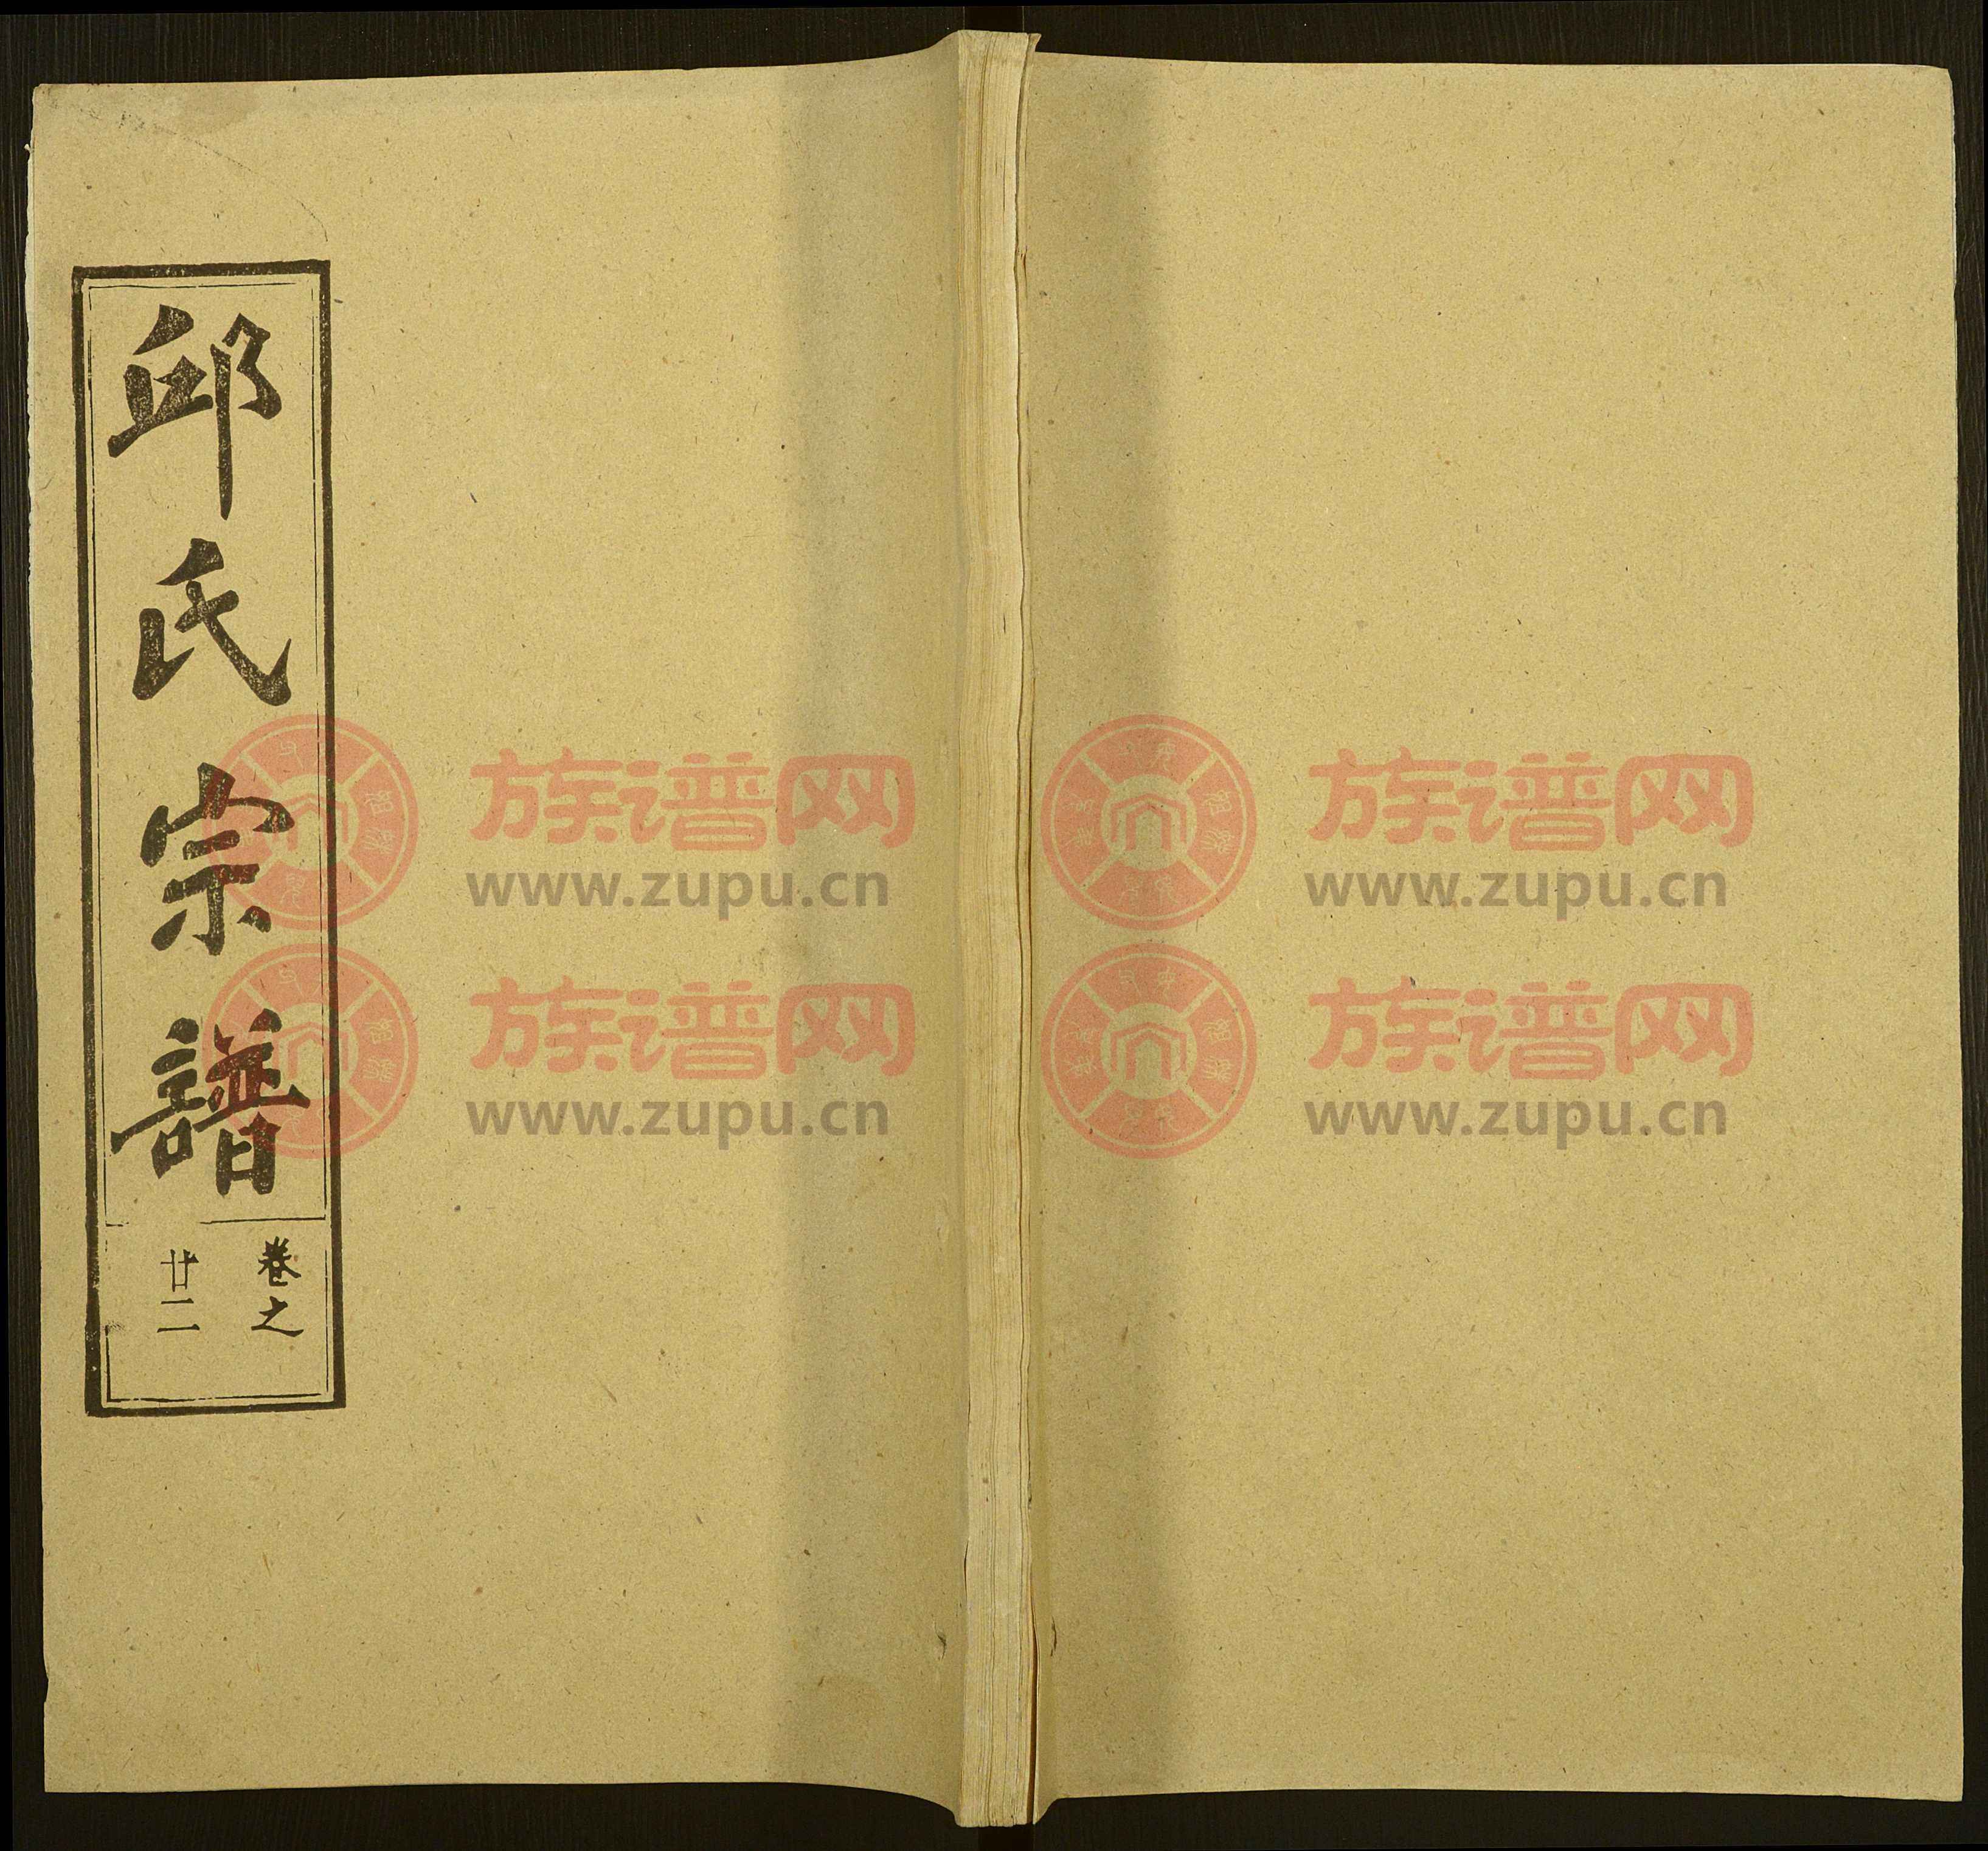 邱氏宗譜
卷之
廿二
族谱网
www.zupu.cn
族谱网
www.zupu.cn
族谱网
www.zupu.cn
族谱网
www.zupu.cn